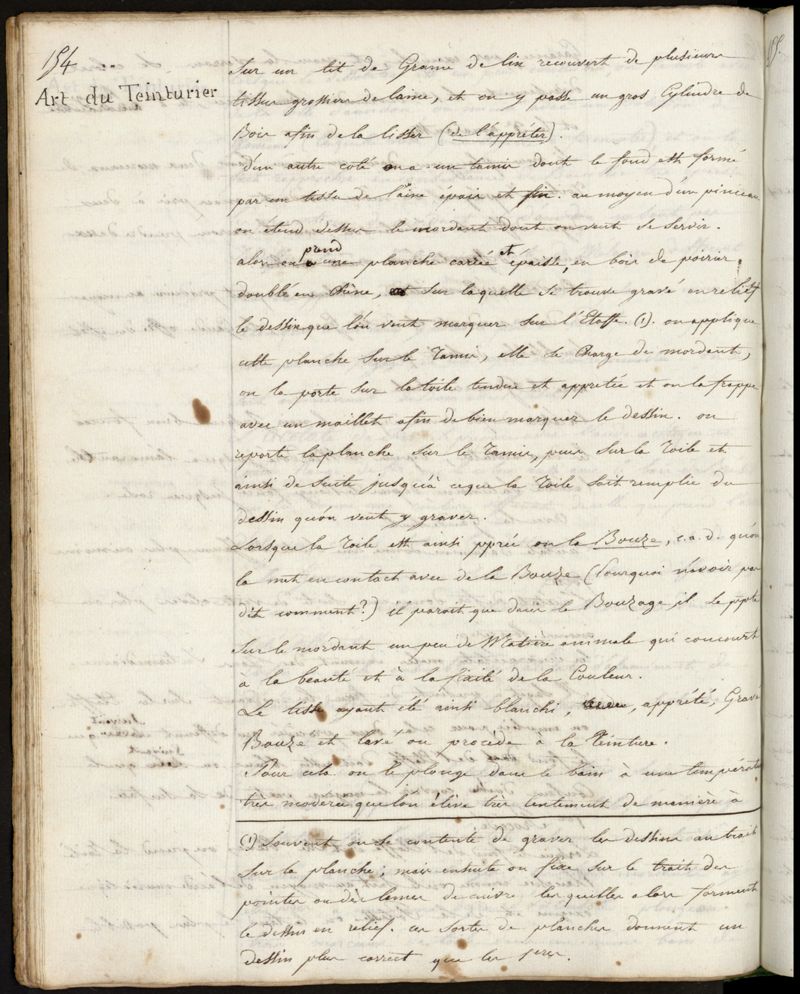 154
Art du Teinturier
Sur un lit de Graine de lin recouvert de plusieurs
tissus grossiers de laine, et on y passe un gros Cylindre de
Bois afin de la lisser (de l'appréter).
d'un autre coté on a un tamis dont le fond est formé
par un tissu de laine épais et fin. au moyen d'un pinceau
on étend dessus le mordant dont on veut se servir.
alors on prend une planche carrée et épaisse, en bois de poirier,
doublé en Chêne, sur laquelle se trouve gravé en relief
le dessin que l'on veut marquer sur l'Etoffe. (1). on applique
cette planche sur le Tamis, elle se Charge de mordant,
on la porte sur la toile tendue et appretée et on la frappe
avec un maillet afin de bien marquer le dessin. on
reporte la planche sur le Tamis, puis sur la Toile et
ainsi de suite jusqu'à ce que la Toile soit remplie du
dessin qu'on veut y graver.
Lorsque la Toile est ainsi pprée on la Bouze, c.a.d. qu'on
la met en contact avec de la Bouze (Pourquoi n'avoir pas
dit comment?) il parait que dans le Bouzage il se ppite
sur le mordant un peu de Matière animale qui concourt
à la beauté et à la fixité de la Couleur.
Le tissu ayant été ainsi blanchi, apprété, Gravé
Bouzé et lavé on procède à la Teinture.
Pour cela on le plonge dans le bain à une température
très moderée que l'on élève très lentement de manière à
(1) Souvent on se contente de graver les dessins au trait
sur la planche; mais ensuite on fixe sur le trait des
pointes ou des lames de cuivre lesquelles alors forment
le dessin en relief. ces sortes de planches donnent un
dessin plus correct que les 1eres.